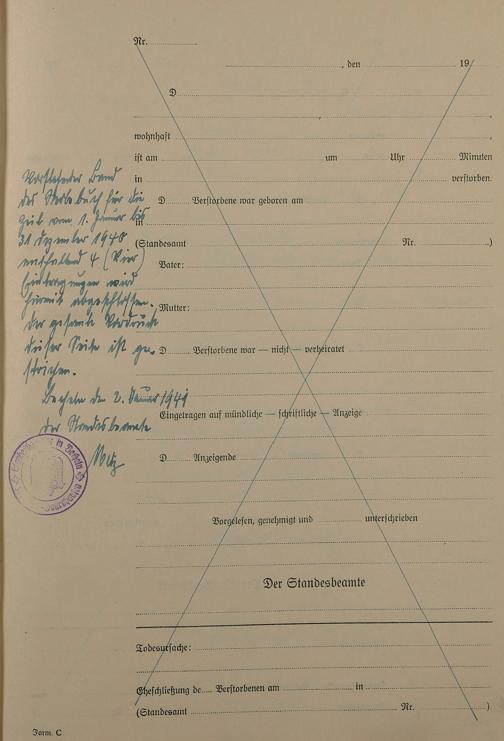 Nr.
, den 19
D
,
wohnhaft
ist am um Uhr Minuten
in verstorben.
D Verstorbene war geboren am
in
(Standesamt Nr. )
Vater:
Mutter:
D Verstorbene war — nicht — verheiratet
Eingetragen auf mündliche — schriftliche — Anzeige
D Anzeigende
Vorgelesen, genehmigt und unterschrieben
Der Standesbeamte
Todesursache:
Eheschließung de Verstorbenen am in
(Standesamt Nr. )
Form. C
Vorstehender Band
des Sterbebuch für die
Zeit vom 1. Januar bis
31 Dezember 1940
enthaltend 4 (Vier)
Eintragungen wird
hiermit abgeschlossen.
Der gesamte Vordruck
dieser Seite ist ge-
strichen.
den 2. Januar 1941
Der Standesbeamte